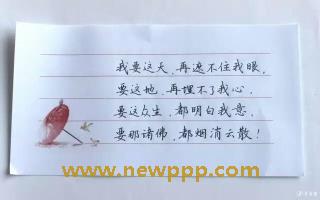 我要这天，再遮不住我眼，
要这地，再埋不了我心，
要这众生，都明白我意，
要那诸佛，都烟消云散！
www.newppp.com